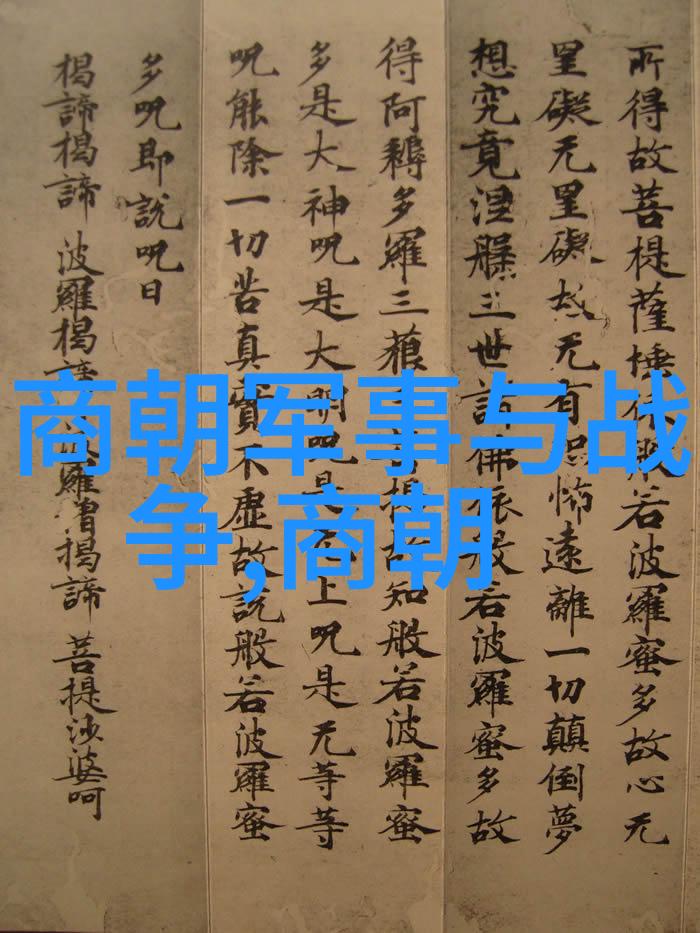 所得故菩提薩埵依般若波羅蜜多故心无
罣礙无罣礙故无有恐怖遠離一切顛倒夢
想究竟涅槃三世諸佛依般若波羅蜜多故
得阿耨多羅三藐提故知般若波羅蜜
多是大神呪是大明呪是无上呪是无等等
呪能除一切苦真實不虛故說般若波羅蜜
多呪即說呪曰
揭諦揭諦 波羅揭諦 羅僧揭諦 菩提沙婆呵
商朝军事与战
争,商朝